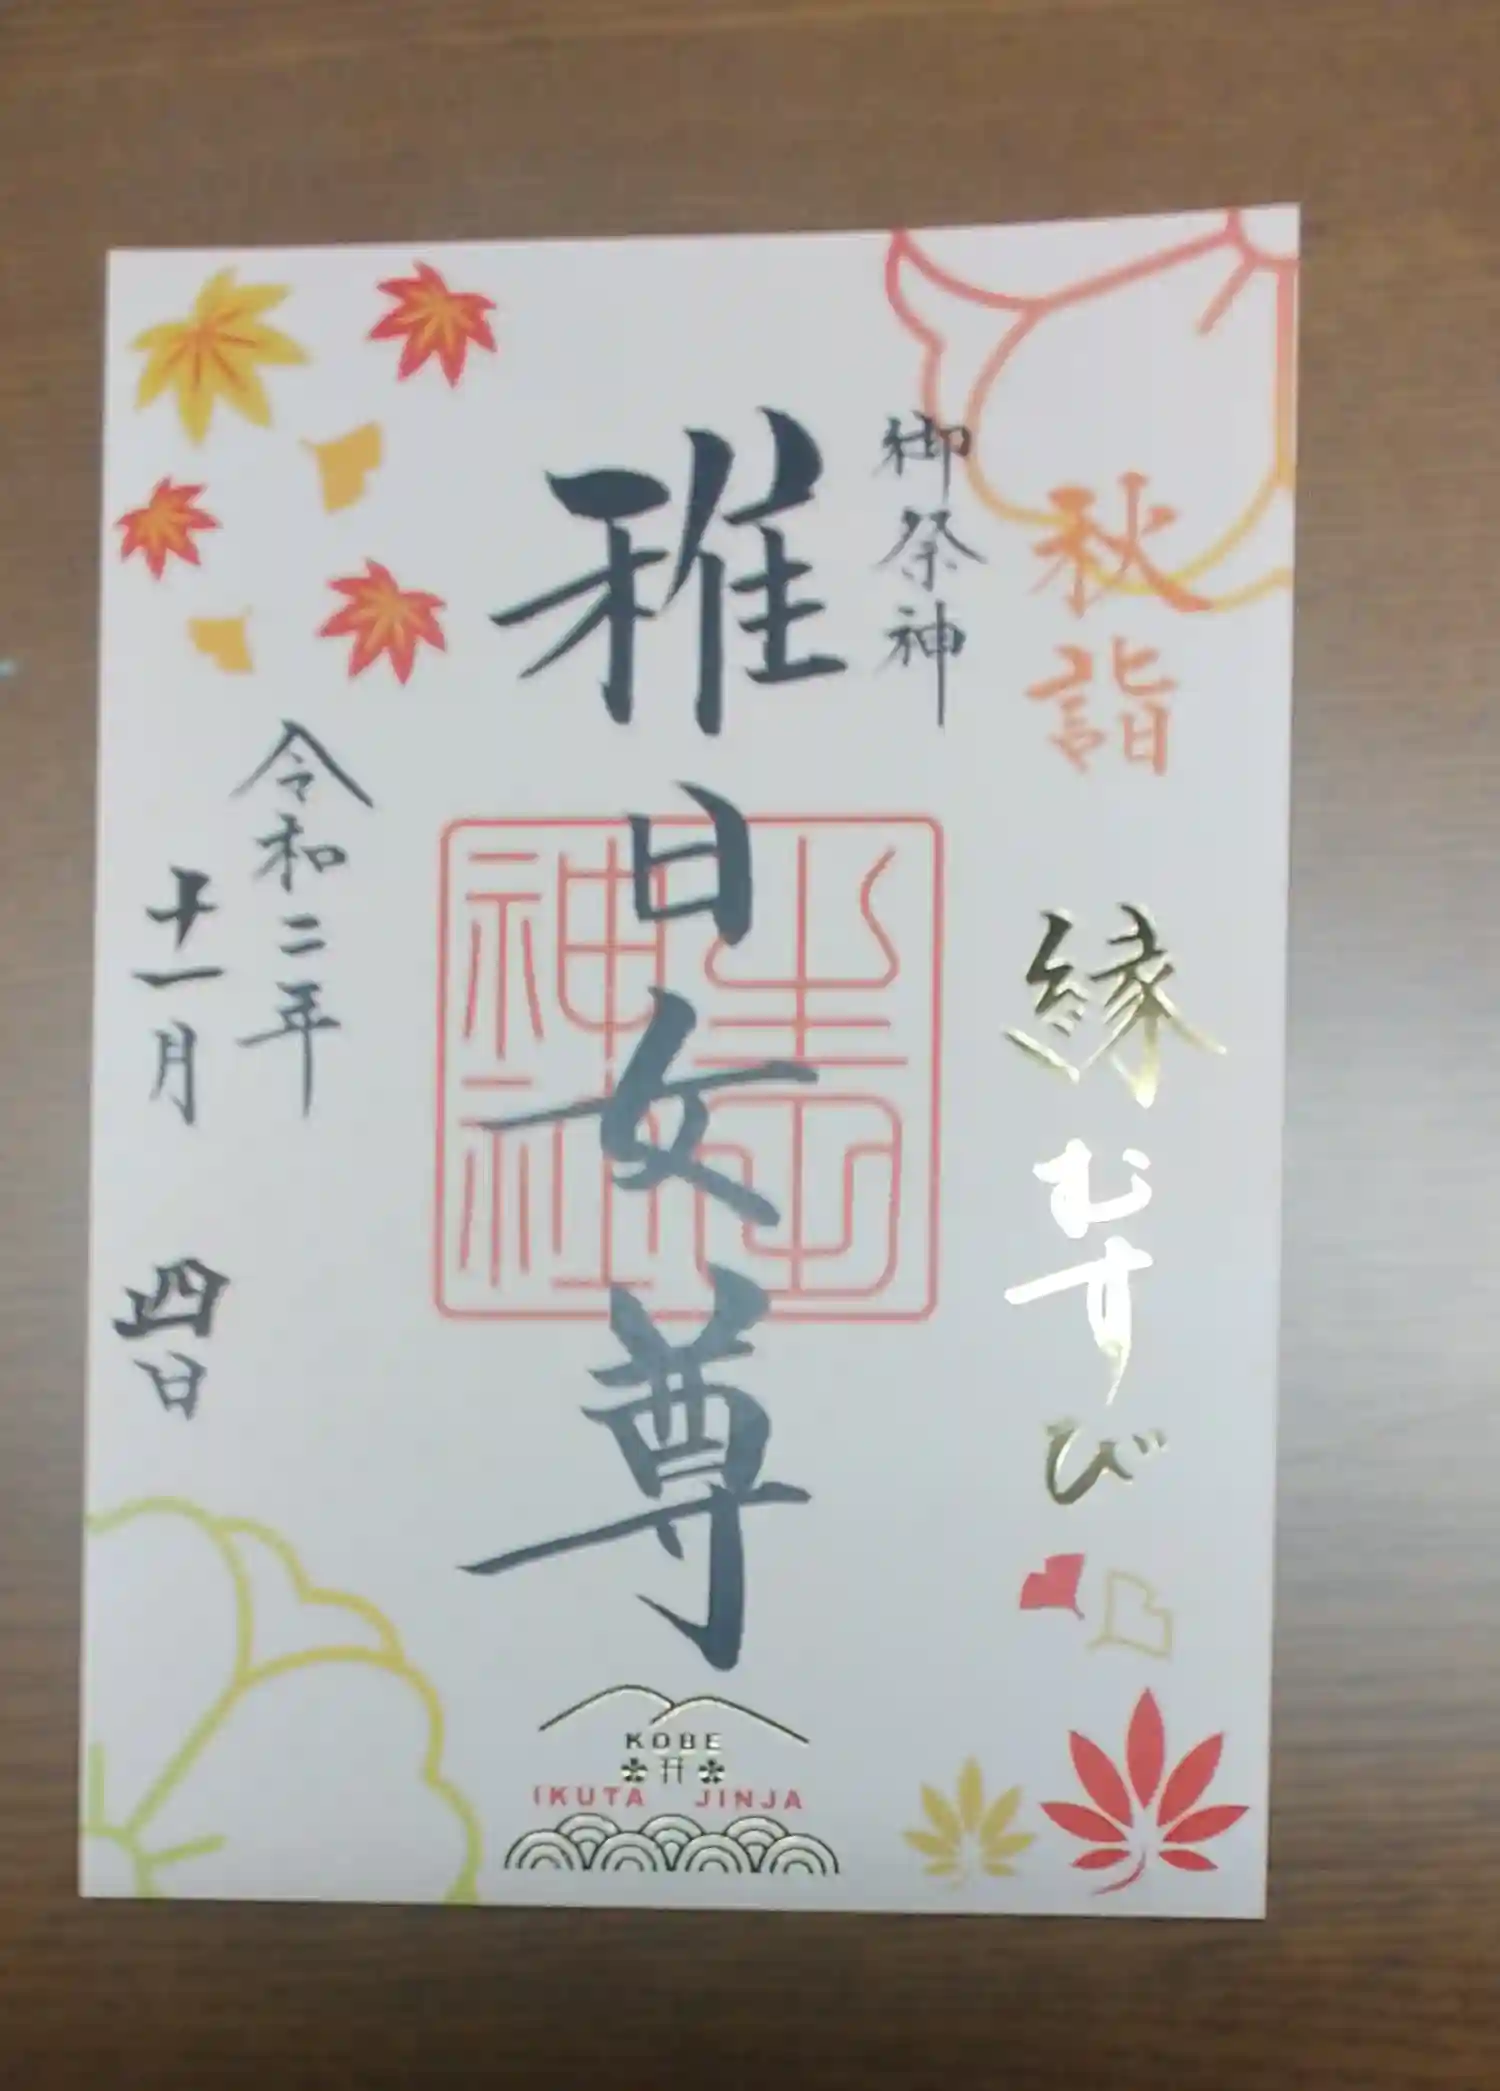 秋詣 縁むすび
御祭神
稚日女尊
生田神社
令和二年
十一月 四日
KOBE
IKUTA JINJA